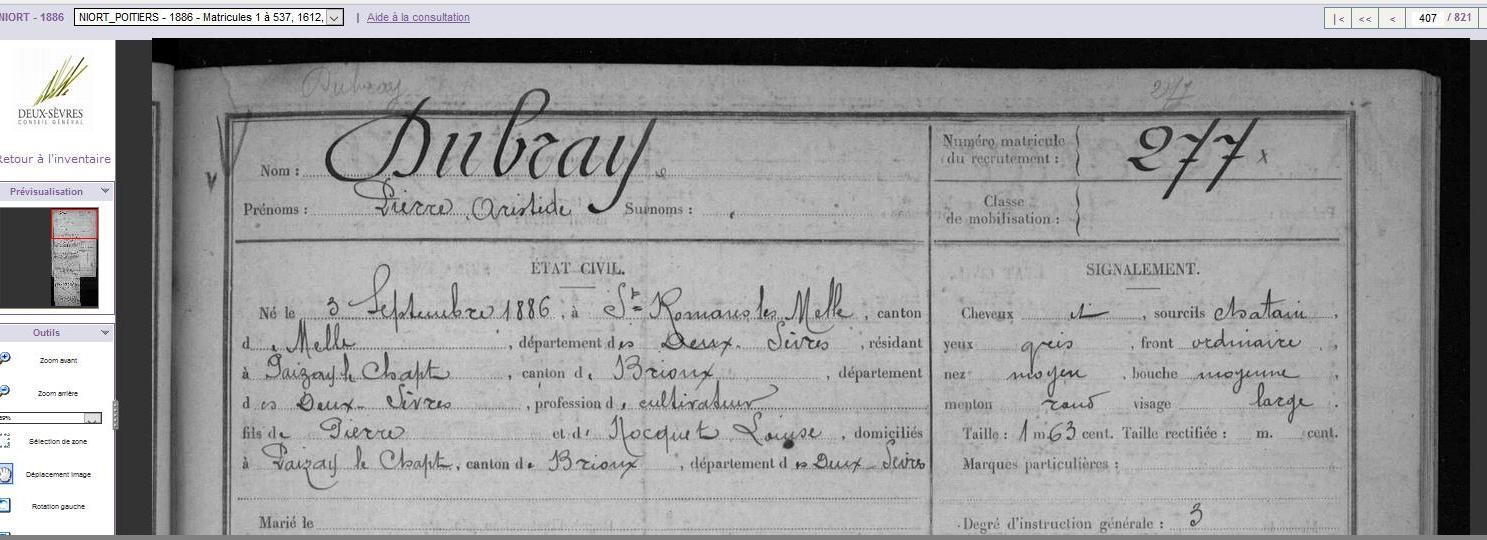 NIORT - 1886 NIORT_POITIERS - 1886 - Matricules 1 à 537, 1612, | Aide à la consultation |< << < 407 / 821
DEUX-SÈVRES
CONSEIL GÉNÉRAL
Retour à l'inventaire
Prévisualisation
Outils
Zoom avant
Zoom arrière
Sélection de zone
Déplacement image
Rotation gauche
Dubray 277
Nom : Dubray
Prénoms : Pierre Aristide Surnoms :
Numéro matricule du recrutement : 277 x
Classe de mobilisation :
ÉTAT CIVIL.
Né le 3 Septembre 1886, à St Romans les Melle, canton
d e Melle, département des Deux-Sèvres, résidant
à Paizay le Chapt, canton de Brioux, département
d es Deux-Sèvres, profession de cultivateur
fils de Pierre et de Nocquet Louise, domiciliés
à Paizay le Chapt, canton de Brioux, département d es Deux-Sèvres
Marié le
SIGNALEMENT.
Cheveux et, sourcils chatain,
yeux gris, front ordinaire,
nez moyen, bouche moyenne,
menton rond visage large.
Taille : 1 m 63 cent. Taille rectifiée : m. cent.
Marques particulières :
Degré d'instruction générale : 3